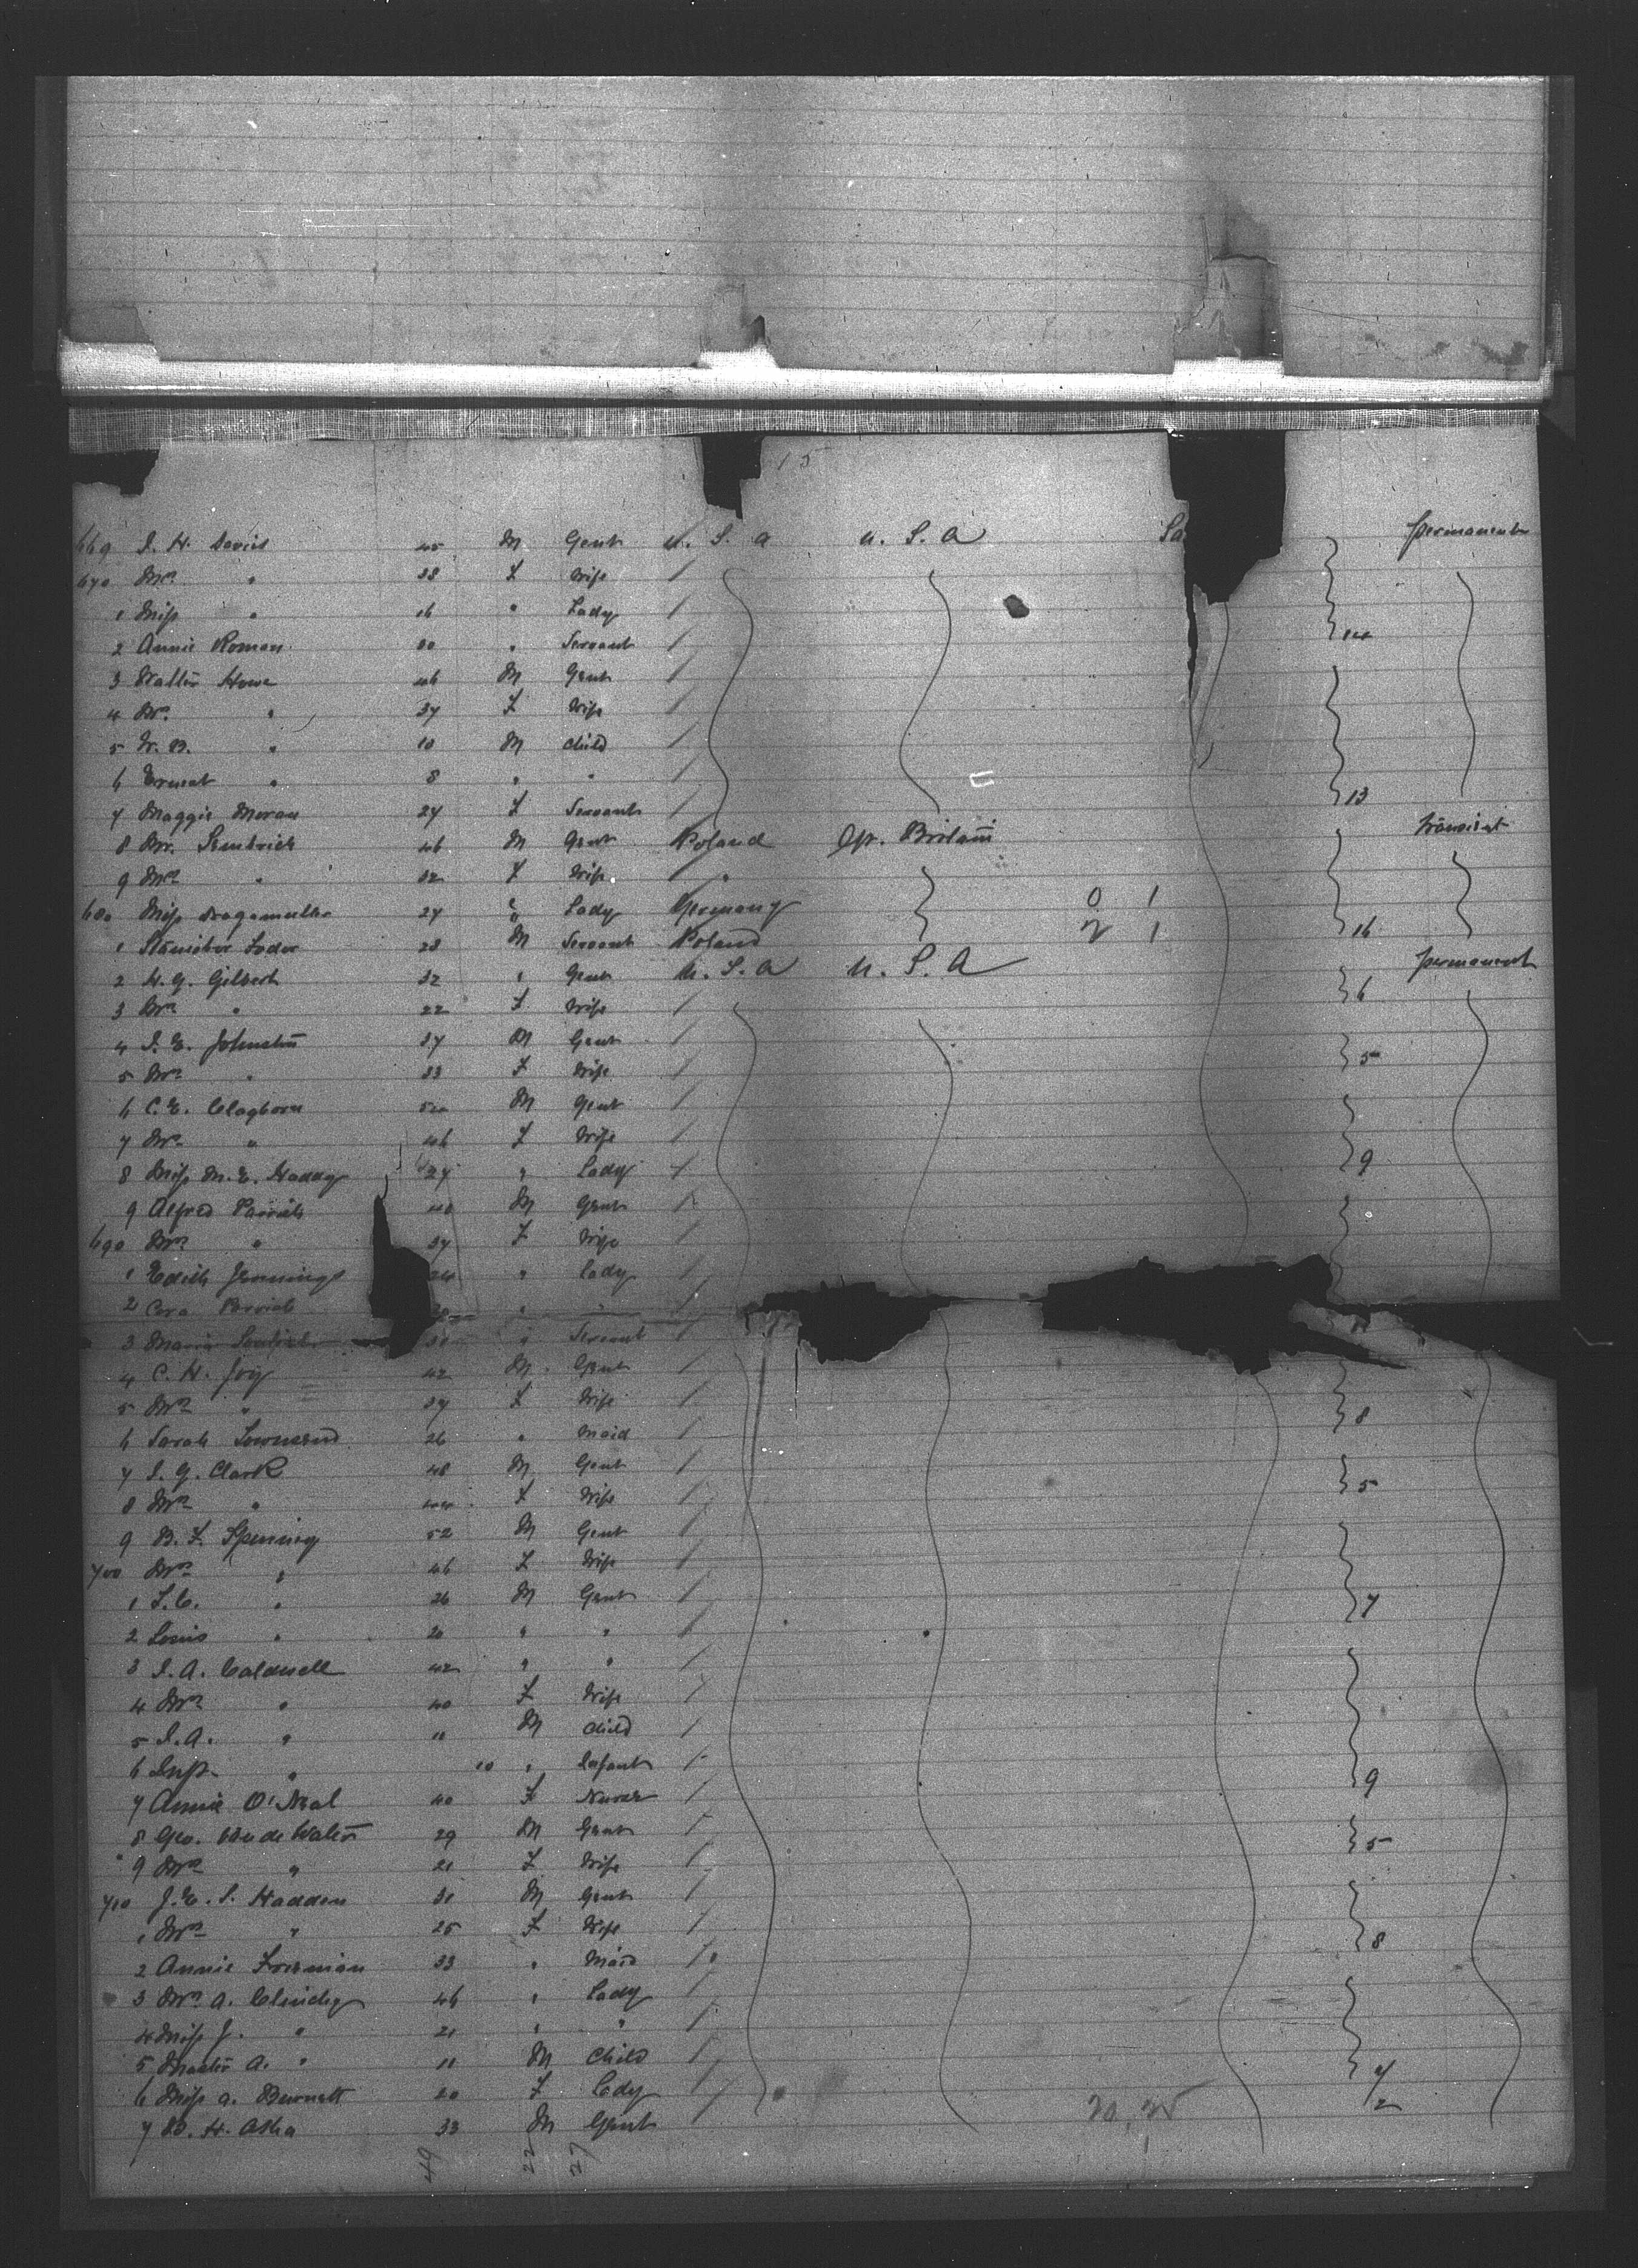 15
669 J. H. Davies 45 M Gent U. S. A U. S. A Sa permanent
670 Mrs " 38 F Wife /
1 Miss " 16 " Lady /
2 Annie Roman 30 " Servant / 14
3 Walter Howe 46 M Gent /
4 Mrs " 37 F Wife /
5 W. B. " 10 M Child /
6 Ernest " 8 " " / 13
7 Maggie Moran 27 F Servant /
8 Mr. Sembrich 46 M Gent Poland Gr. Britain transient
9 Mrs " 32 F Wife "
680 Miss 27 " Lady Germany 0 1
1 28 M Servant Poland 2 1 16
2 H. G. Gilbert 32 " Gent U. S. A U. S. A permanent
3 Mrs " 22 F Wife / 6
4 J. E. Johnston 37 M Gent /
5 Mrs " 33 F Wife / 5
6 C. E. Claghorn M Gent /
7 Mrs " 46 F Wife /
8 Miss M. E. Haddy 27 " Lady / 9
9 Alfred Parrish 40 M Gent /
690 Mrs " 37 F Wife /
1 Edith Jennings 24 " Lady /
2 Cora Parrish " " /
3 Maria " Servant /
4 C. H. Joy 42 M Gent /
5 Mrs " 37 F Wife /
6 Sarah Townsend 26 " Maid / 8
7 J. G. Clark 48 M Gent /
8 Mrs " 44 F Wife / 5
9 B. F. Spinning 52 M Gent /
700 Mrs " 46 F Wife /
1 F. C. " 26 M Gent / 7
2 Louis " 20 " " /
3 J. A. Caldwell 42 " " /
4 Mrs " 40 F Wife /
5 J. A. " 11 M Child /
6 Inft. " 10 " Infant /
7 Annie O'Neal 40 F Nurse / 9
8 Geo. Van de Water 29 M Gent /
9 Mrs " 21 F Wife / 5
710 J. E. S. Hadden 31 M Gent /
1 Mrs " 25 F Wife / 8
2 Annie Freeman 33 " Maid /
3 Mrs A. Clindig 46 " Lady /
4 Miss J. " 21 " " /
5 Master A. " 11 M Child / 7
6 Miss A. Burnett 20 F Lady / 2
7 B. H. Asha 33 M Gent
49 22 27